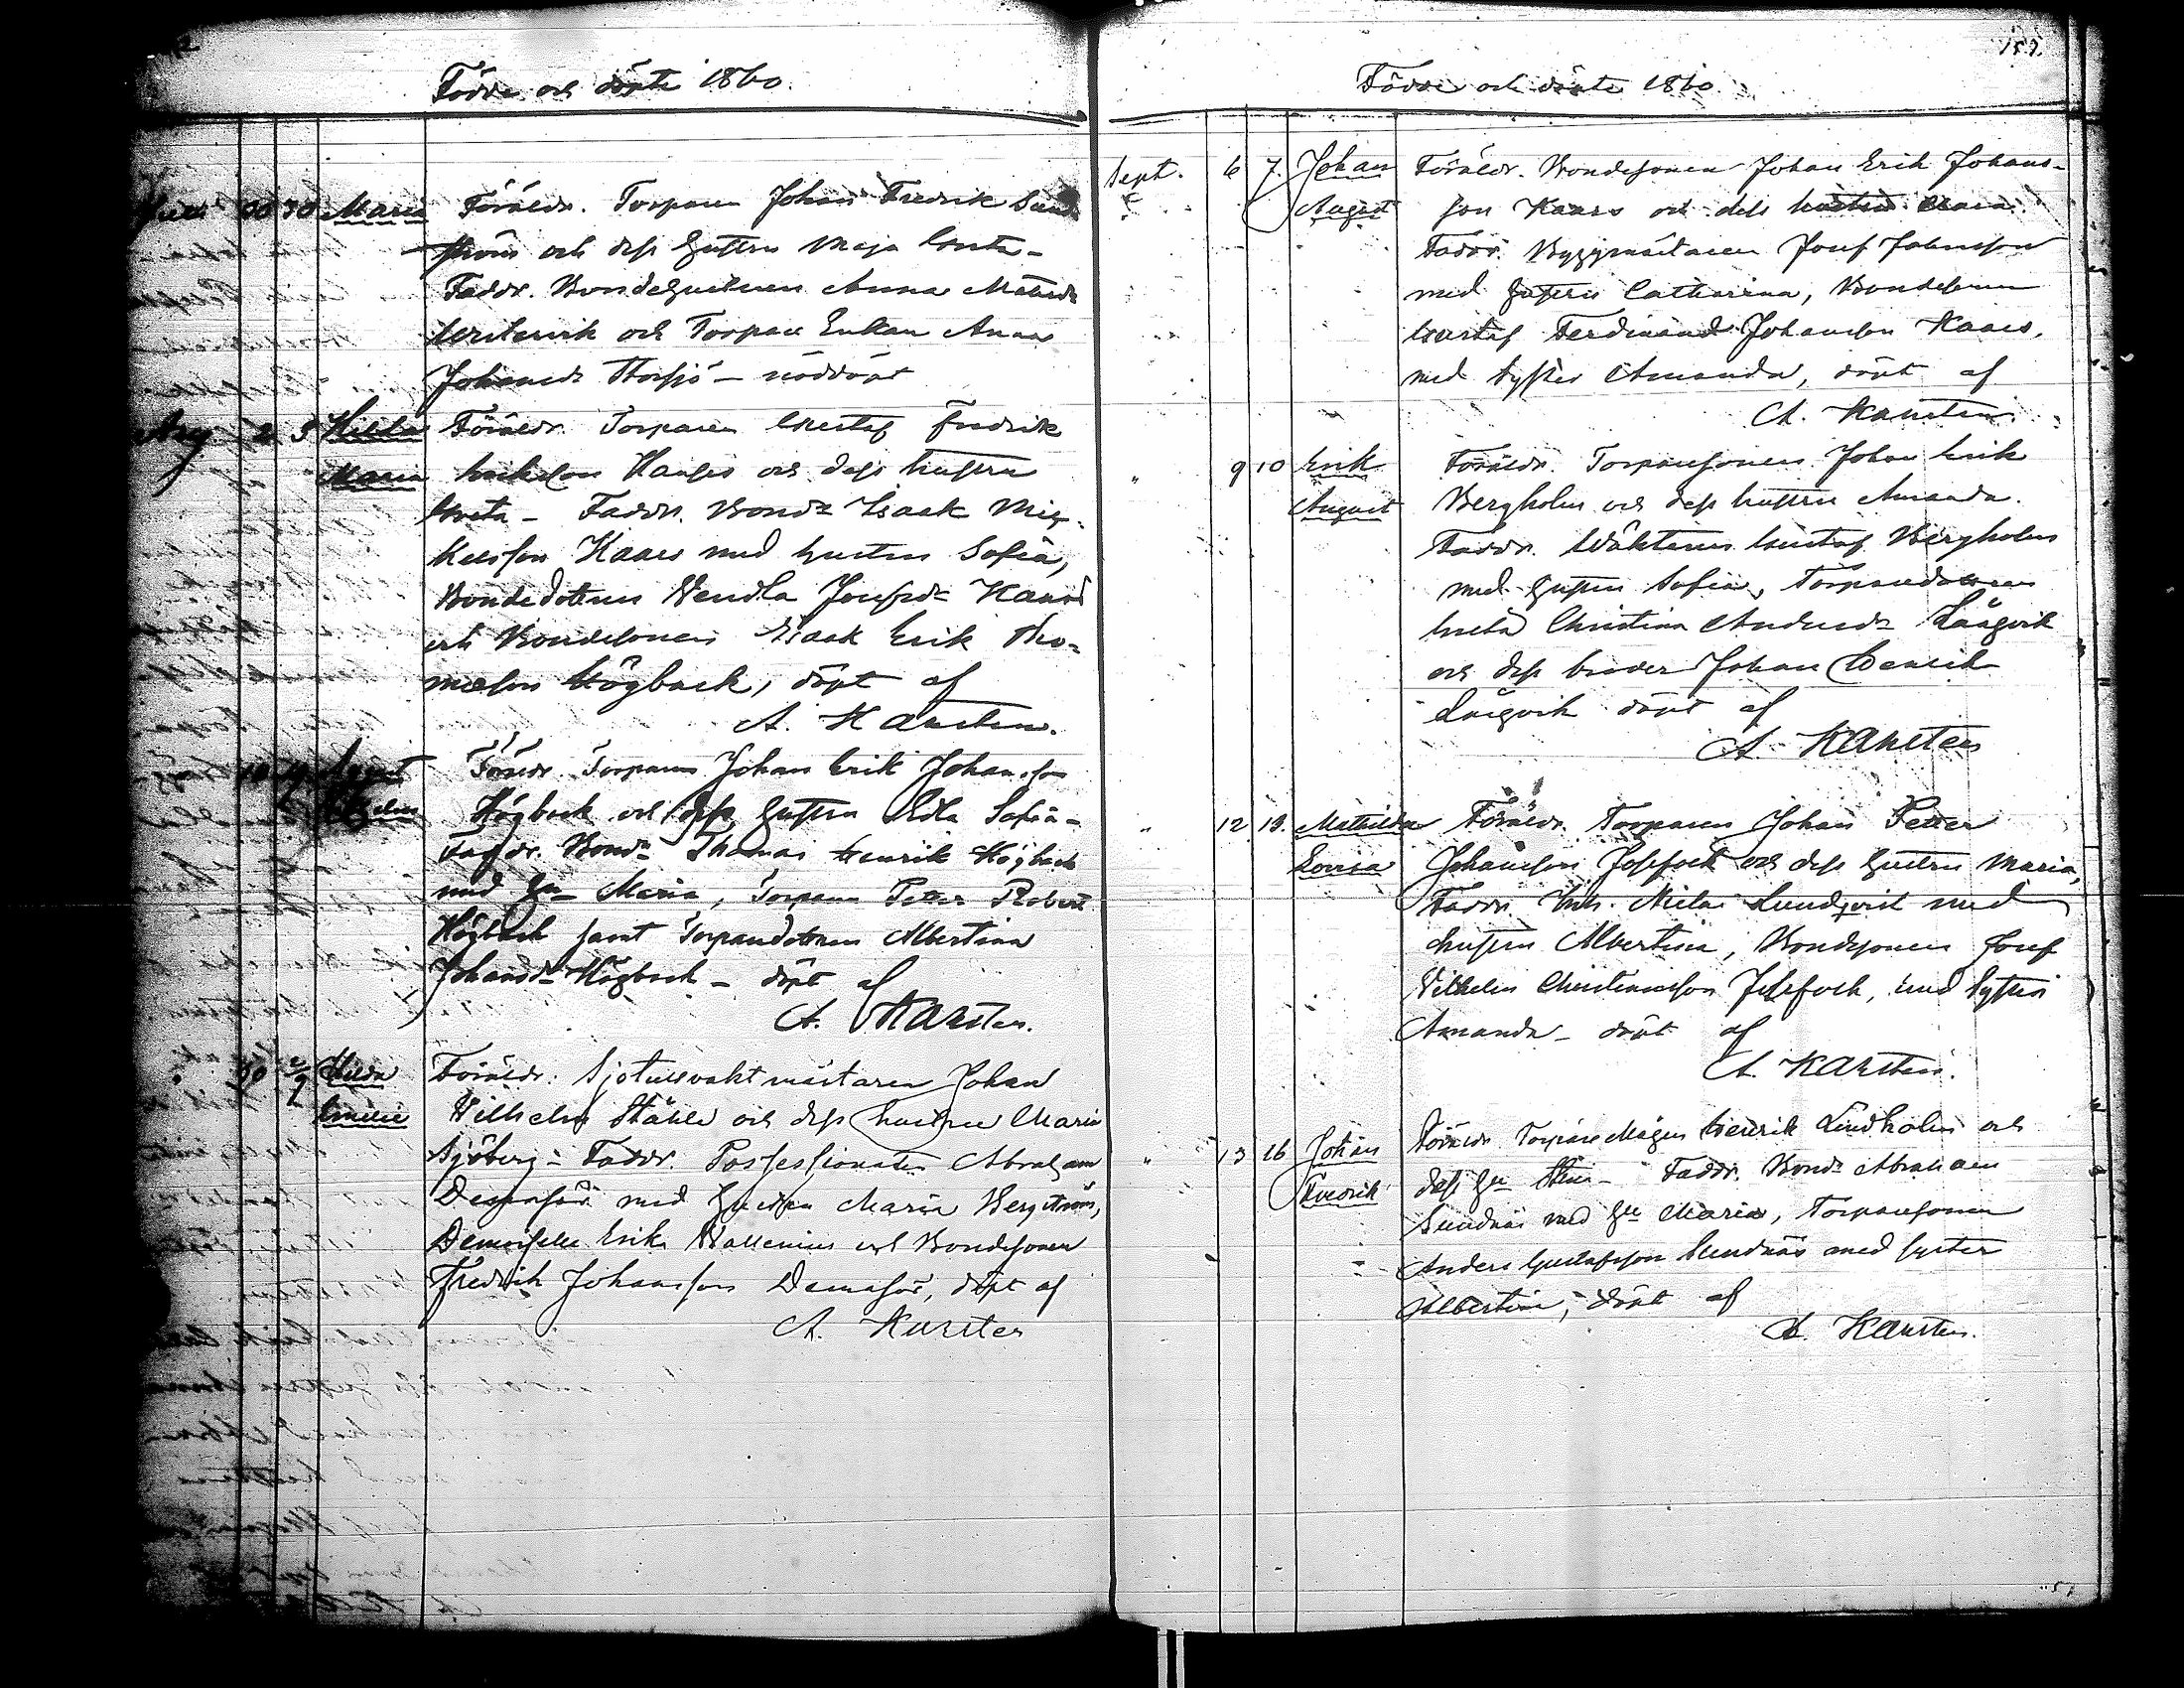 Födde och döpte 1860.
30 30 Maria Föräldr. Torparen Johan Fredrik Sund-
ström och dess hustru Maja Greta -
Faddr. Anna
och Torpare Enkan Anna
Johansdr - nöddöpt
Aug 2 5 Hilda Föräldr. Torparen Gustaf Fredrik
Maria och dess hustru
Greta - Faddr. Bond. Isaak Mic-
kelsson Kaars med hustru Sofia,
Bondedottren Vendla Josefsdr Kaars
och Bondesonen Isaak Erik Tho-
masson Högback, döpt af
A. Karsten.
19 August Föräldr. Torparen Johan Erik Johansson
Högback och dess hustru Sofia -
Faddr. Bond. Thomas Henrik Högback
med hu Maria, Torparen Petter Robert
Högback samt Torparedottren Albertina
Johansdr Högback - döpt af
A. Karsten.
30 2/9 Hilda Föräldr. Sjötullsvaktmästaren Johan
Emilie Wilhelm Ståhle och dess hustru Maria
Sjöberg - Faddr. Possessionaten Abraham
med hustru Maria Bergström,
Demoiselle Erika Wallenius och Bondesonen
Fredrik Johansson, döpt af
A. Karsten
Födde och döpte 1860.
Sept. 6 7. Johan Föräldr. Bondesonen Johan Erik Johans-
August son Kaars och dess hustru Maria.
Faddr. Byggmästaren Josef Johansson
med hustru Catharina, Bondesonen
Gustaf Ferdinand Johansson Kaars,
med syster Amanda, döpt af
A. Karsten
" 9 10 Erik Föräldr. Torparesonen Johan Erik
August Bergholm och dess hustru Amanda.
Faddr. Gustaf Bergholm
med hustru Sofia, Torparedottren
Greta Christina Andersdr Långvik
och dess broder Johan Henrik
Långvik döpt af
A. Karsten
" 12 13. Mathilda Föräldr. Torparen Johan Petter
Lovisa Johansson och dess hustru Maria,
Faddr. Lundqvist med
hustru Albertina, Bondesonen Josef
Vilhelm med syster
Amanda - döpt af
A. Karsten.
" 13 16 Johan Föräldr. Torpare Mågen Henrik Lindholm och
Fredrik dess hu Stina - Faddr. Bond. Abraham
Sundnäs med hu Maria, Torparesonen
Anders Gustafsson Sundnäs med syster
Albertina, döpt af
A. Karsten.